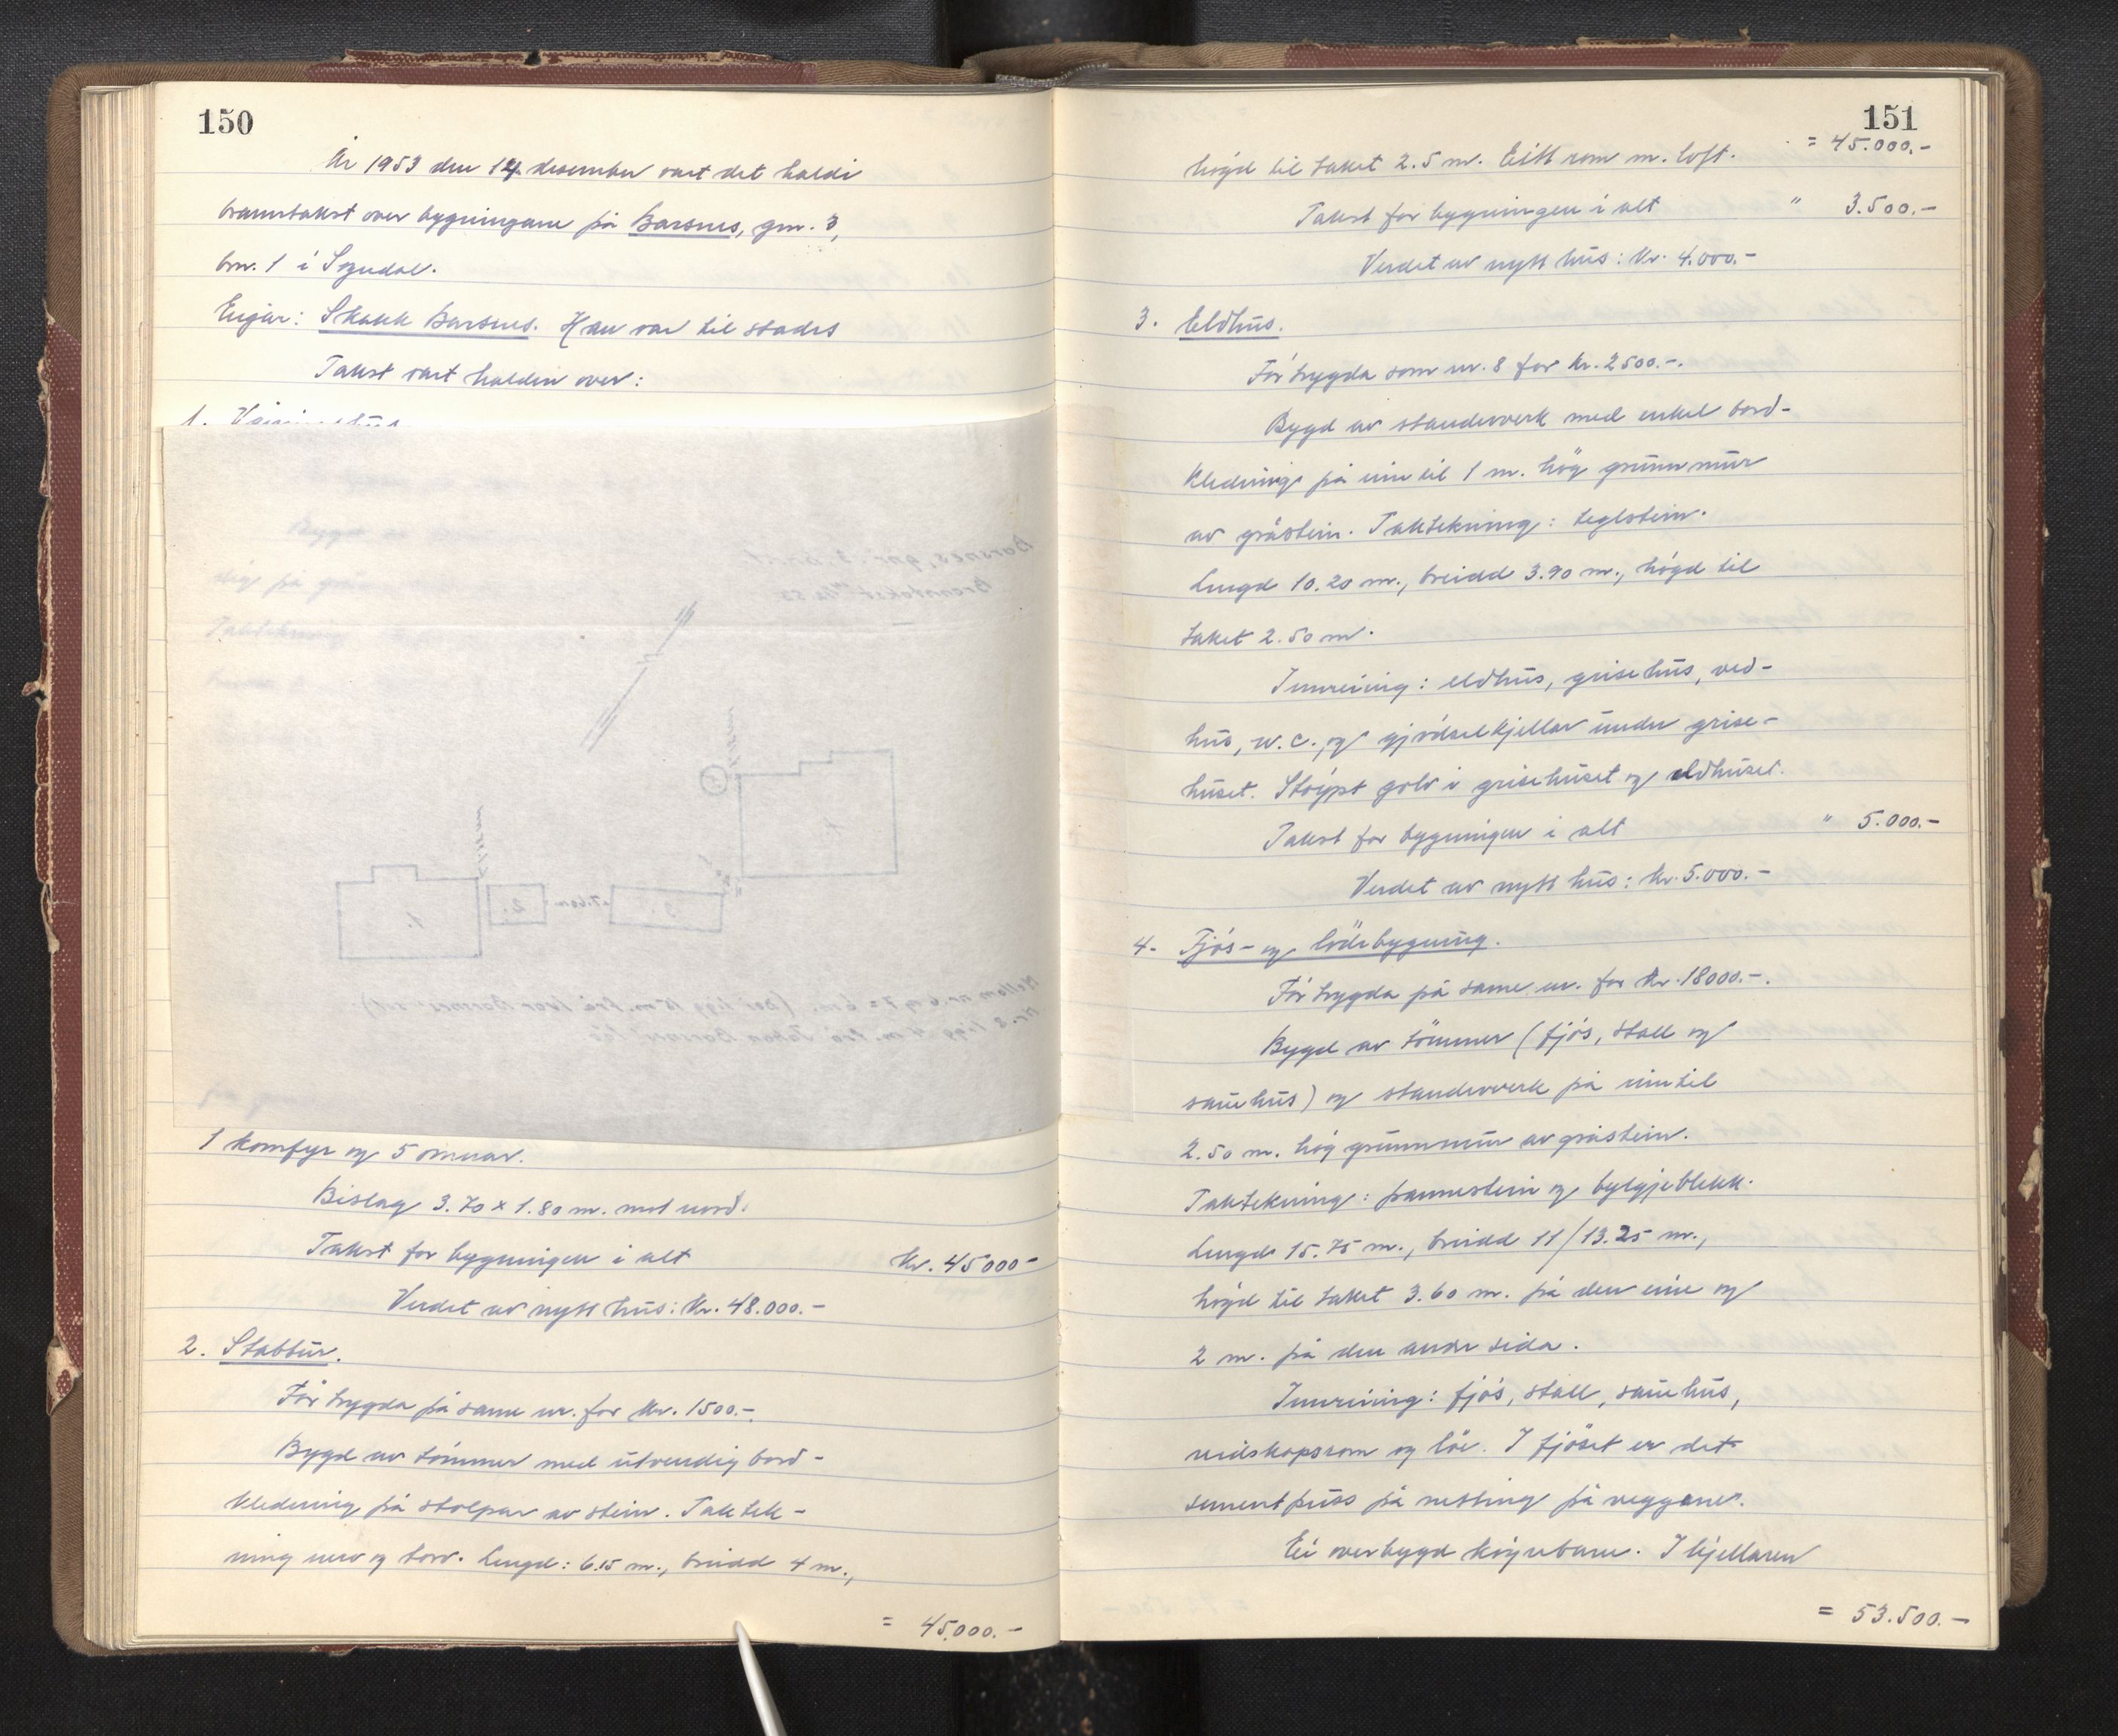 150
År 1953 den 14. desember vart det haldi
branntakst over bygningane på Barsnes, gnr. 3,
bnr. 1 i Sogndal.
Eigar: Skakk Barsnes. Han var til stades
Takst vart halden over:
1. Våningshus
Barsnes, gnr. 3
Branntakst
1.
2.
3.
4.
Mellom nr. 6 og 7 = 6 m. (Dei ligg 15 m. frå Ivar Barsnes
Nr. 8 ligg 4 m. frå Johan Barsnes
1 komfyr og 5 omnar.
Bislag 3.70 x 1.80 m. mot nord.
Takst for bygningen i alt kr. 45000-
Verdet av nytt hus: kr. 48.000.-
2. Stabbur.
Før trygda på same nr. for kr. 1500.-
Bygd av tømmer med utvendig bord-
kledning på stolpar av stein. Taktek-
ning nevr og torv. Lengd: 6.15 m., breidd 4 m.,
= 45.000.-
151
= 45.000.-
høgd til taket 2.5 m. Eitt rom m. loft.
Takst for bygningen i alt " 3.500.-
Verdet av nytt hus: kr. 4.000.-
3. Eldhus.
Før trygda som nr. 8 for kr. 2500.-.
Bygd av standerverk med enkel bord-
kledning på inntil 1 m. høg grunnmur
av gråstein. Taktekning: teglstein.
Lengd 10.20 m., breidd 3.90 m., høgd til
taket 2.50 m.
Innreiing: eldhus, grisehus, ved-
hus, w.c., og gjødselkjellar under grise-
huset. Støypt golv i grisehuset og eldhuset.
Takst for bygningen i alt " 5.000.-
Verdet av nytt hus: kr. 5.000.-
4. Fjøs- og lødebygning.
Før trygda på same nr. for kr. 18000.-.
Bygd av tømmer (fjøs, stall og
sauehus) og standerverk på inntil
2.50 m. høg grunnmur av gråstein.
Taktekning: pannestein og bylgjeblekk.
Lengd 15.75 m., breidd 11/13.25 m.,
høgd til taket 3.60 m. på den eine og
2 m. på den andre sida.
Innreiing: fjøs, stall, sauehus,
reidskapsrom og løe. I fjøset er det
sementpuss på netting på veggane.
Ei overbygd køyrebru. I kjellaren
= 53.500.-